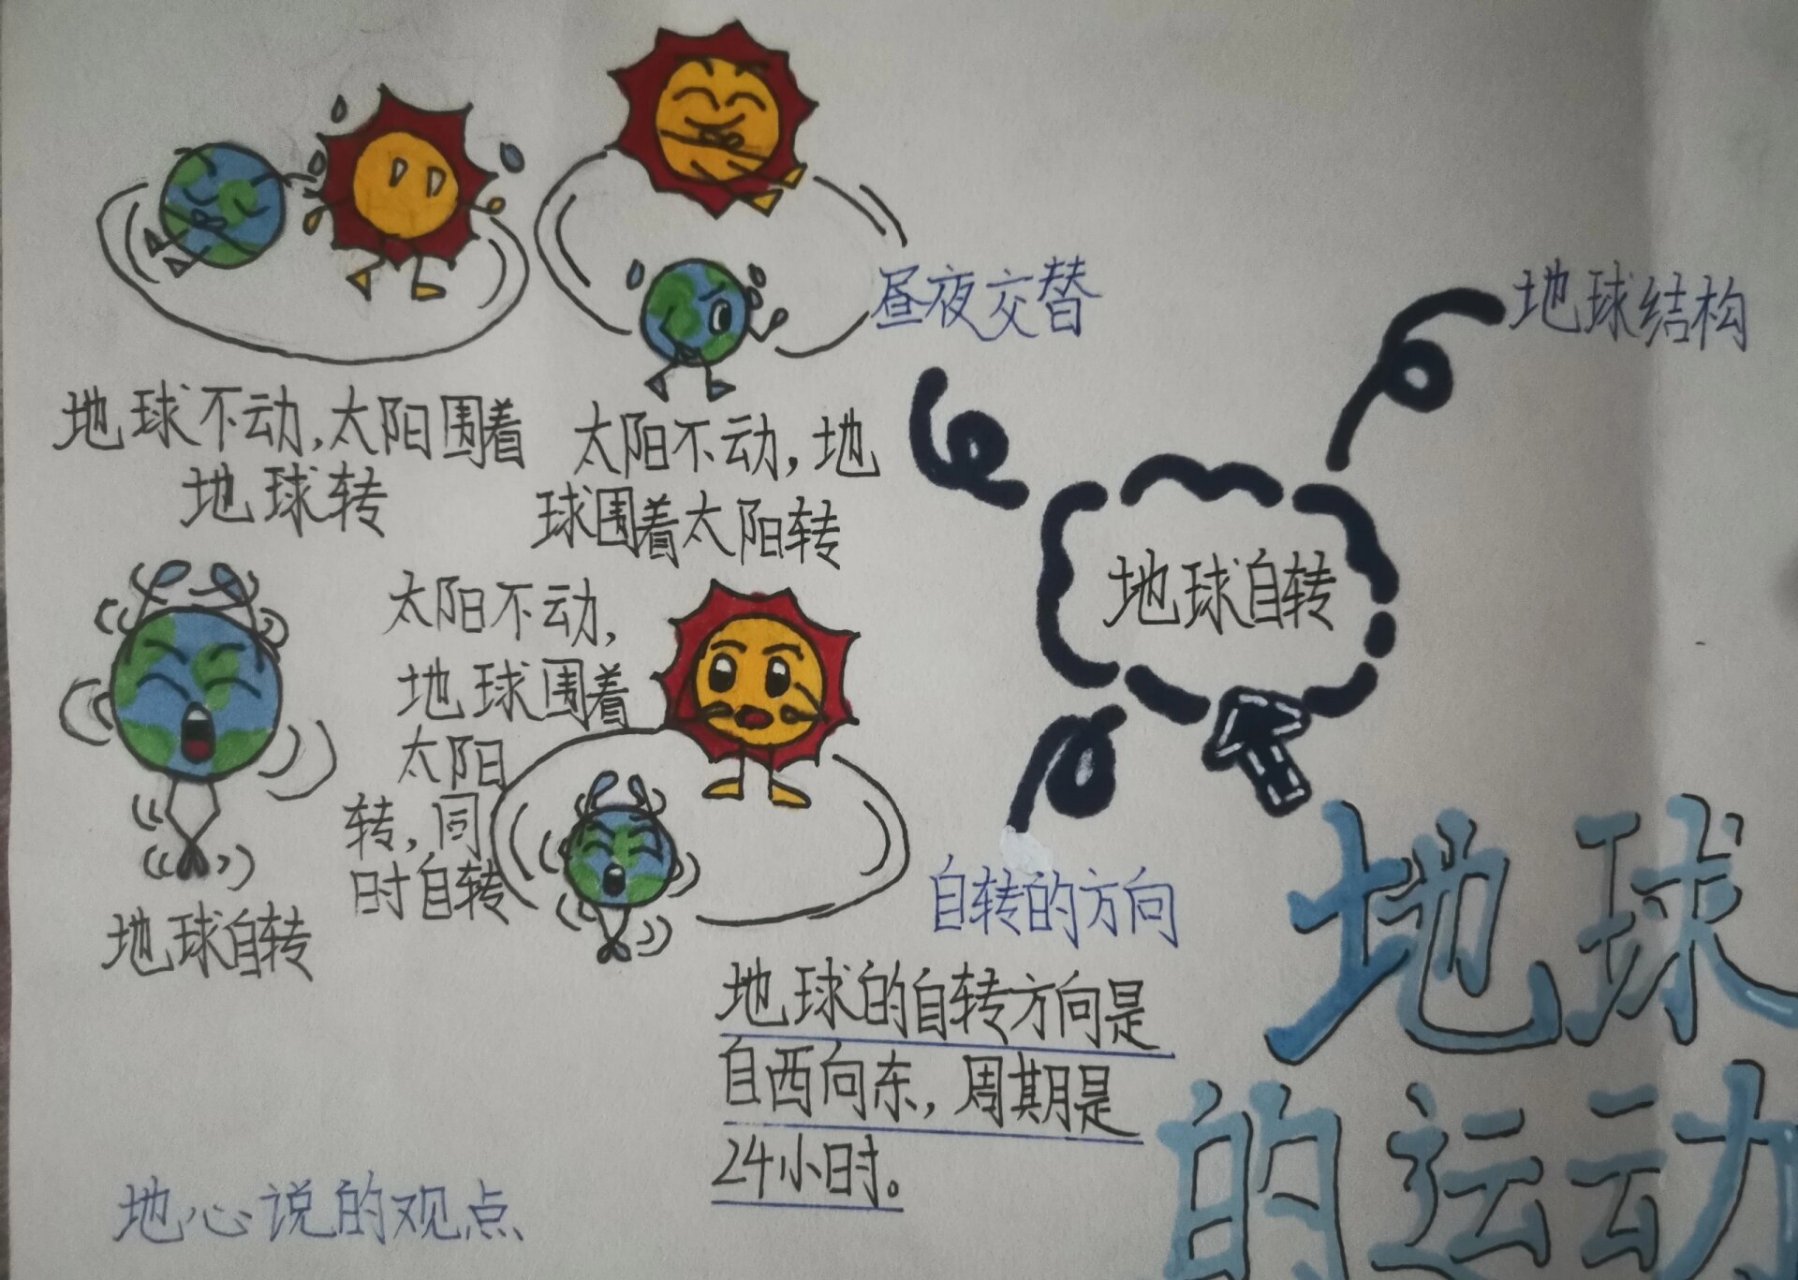 昼夜交替
地球不动,太阳围着
地球转
太阳不动,地
球围着太阳转
地球自转
太阳不动,
地球围着
太阳
转,同
时自转
地球结构
地球自转
自转的方向
地球的自转方向是
自西向东,周期是
24小时。
地心说的观点
地球
的运动